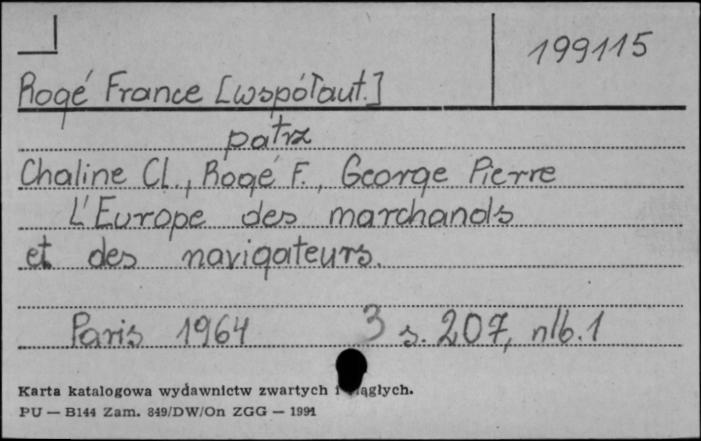 199115
Rogé France [współaut.]
patrz
Chaline Cl., Rogé F., George Pierre
L'Europe des marchands
et des navigateurs.
Paris 1964 3 s. 207, nlb. 1
Karta katalogowa wydawnictw zwartych i ciągłych.
PU — B144 Zam. 849/DW/On ZGG — 1991